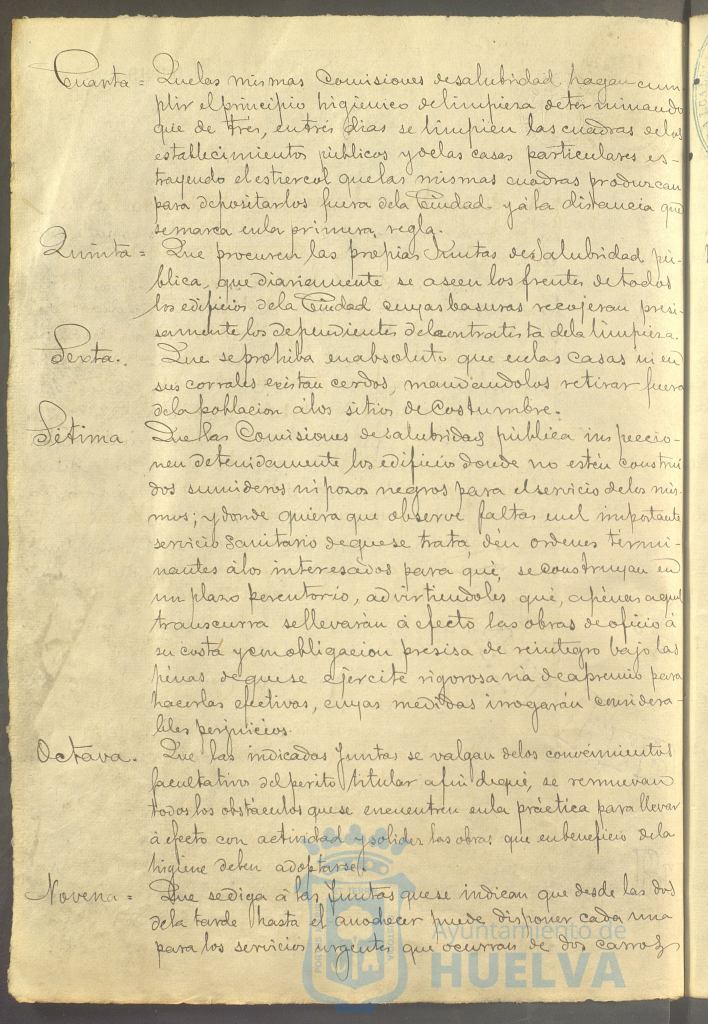 Cuarta = Que las mismas Comisiones de salubridad hagan cum
plir el principio higienico de limpieza determinando
que de tres, en tres dias se limpien las cuadras de los
establecimientos públicos y de las casas particulares es-
trayendo el estiercol que las mismas cuadras produzcan
para depositarlos fuera de la Ciudad y á la distancia que
se marca en la primera regla.
Quinta = Que procuren las propias Juntas de Salubridad pú-
blica, que diariamente se aseen los frentes de todos
los edificios de la Ciudad cuyas basuras recojeran presi-
samente los dependientes del contratista de la limpieza.
Sexta. Que se prohiba en absoluto que en las casas ni en
sus corrales existan cerdos, mandandolos retirar fuera
de la poblacion á los sitios de costumbre.
Sétima Que las Comisiones de salubridad pública inspeccio-
nen detenidamente los edificio donde no estén construi
dos sumideros ni pozos negros para el servicio de los mis-
mos; y donde quiera que observe faltas en el importante
servicio sanitario de que se trata, dén ordenes termi-
nantes á los interesados para qué, se construyan en
un plazo perentorio, advirtiendoles qué, apénas aquel
transcurra se llevarán á efecto las obras de oficio á
su costa y con obligacion presisa de reintegro bajo las
penas de que se ejercite rigorosa via de apremio para
hacerlas efectivas, cuyas medidas irrogarán considera-
bles perjuicios.
Octava. Que las indicadas Juntas se valgan de los conocimientos
facultativo del perito titular a fin de qué, se remuevan
todos los obstáculos que se encuentren en la práctica para llevar
á efecto con actividad y solidez las obras que en beneficio de la
higiene deben adoptarse.
Novena = Que se diga á las Juntas que se indican que desde las dos
de la tarde hasta el anochecer puede disponer cada una
para los servicios urgentes que ocurran de dos carros
Ayuntamiento de
HUELVA